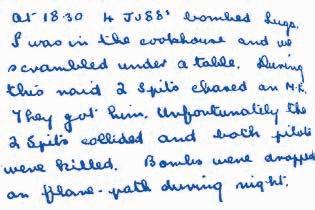 At 18.30 4 JU88s bombed Luqa.
I was in the cookhouse and we
scrambled under a table. During
this raid 2 Spits chased an M.E.
They got him. Unfortunately the
2 Spits collided and both pilots
were killed. Bombs were dropped
on flare-path during night.